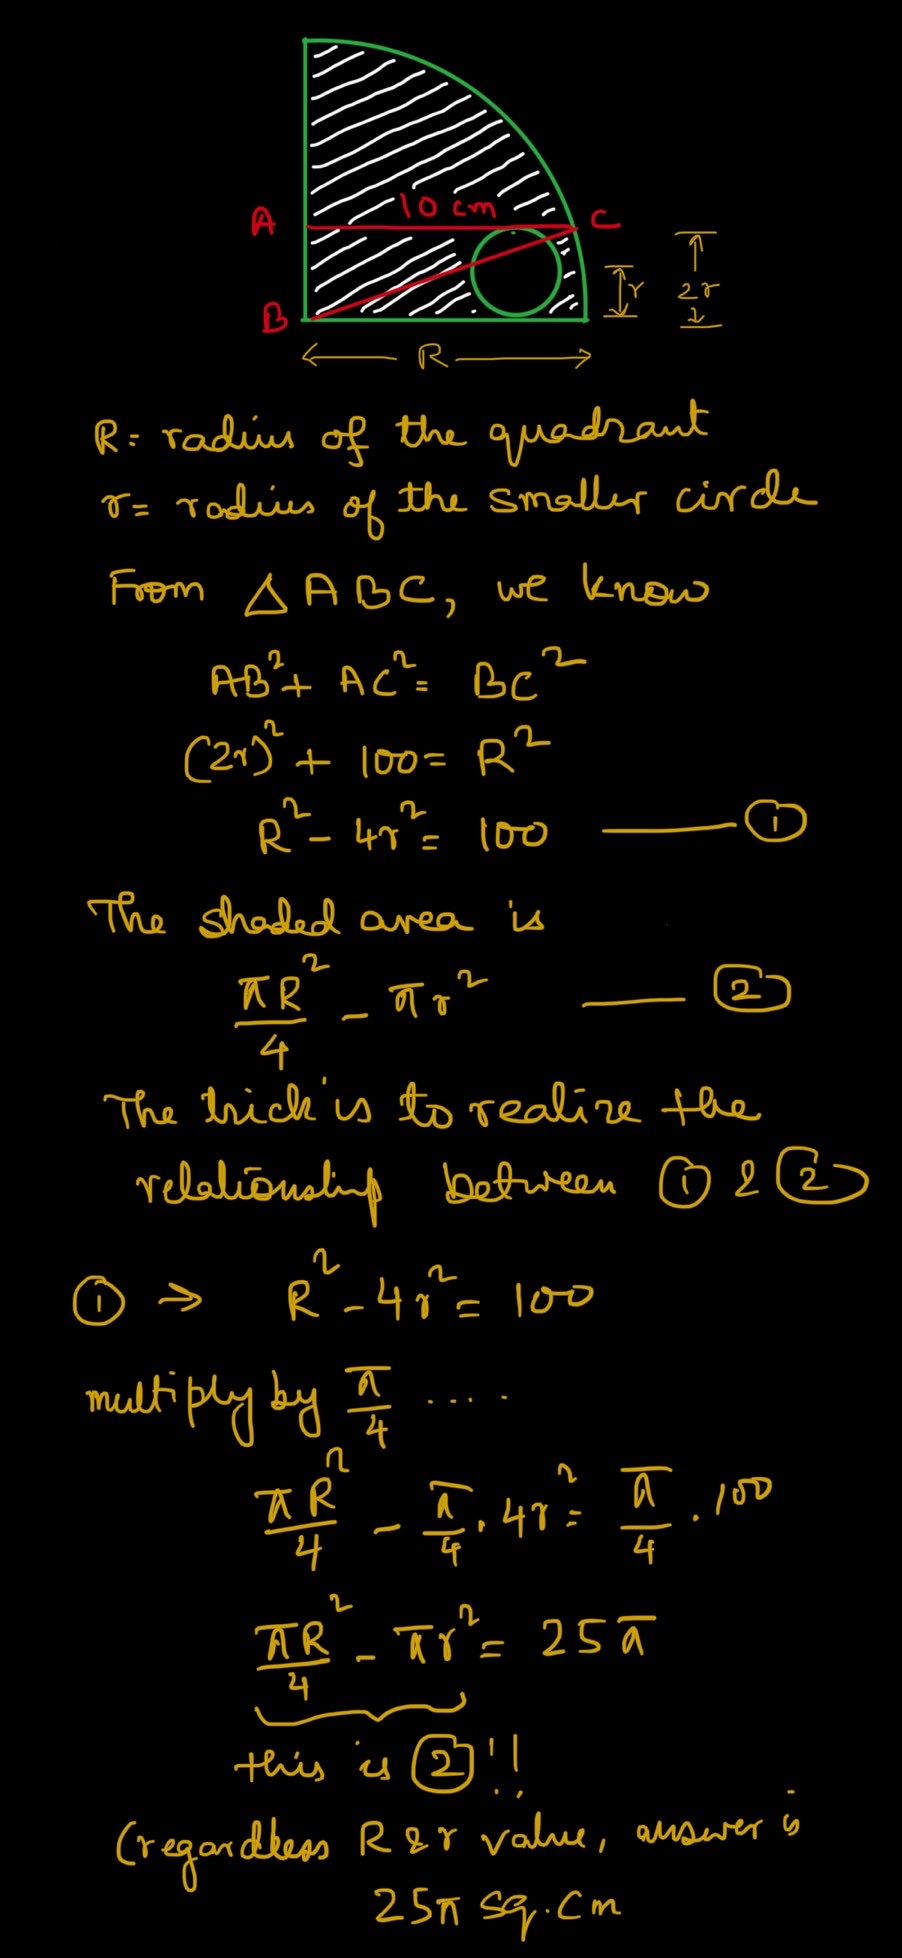 10 cm
A
C
B
r
2r
R
R = radius of the quadrant
r = radius of the smaller circle
From △ABC, we know
AB² + AC² = BC²
(2r)² + 100 = R²
R² - 4r² = 100 —— ①
The shaded area is
πR²/4 - πr² —— ②
The trick is to realize the
relationship between ① & ②
① → R² - 4r² = 100
multiply by π/4 ....
πR²/4 - π/4 . 4r² = π/4 . 100
πR²/4 - πr² = 25π
this is ② !!
(regardless R & r value, answer is
25π sq. cm